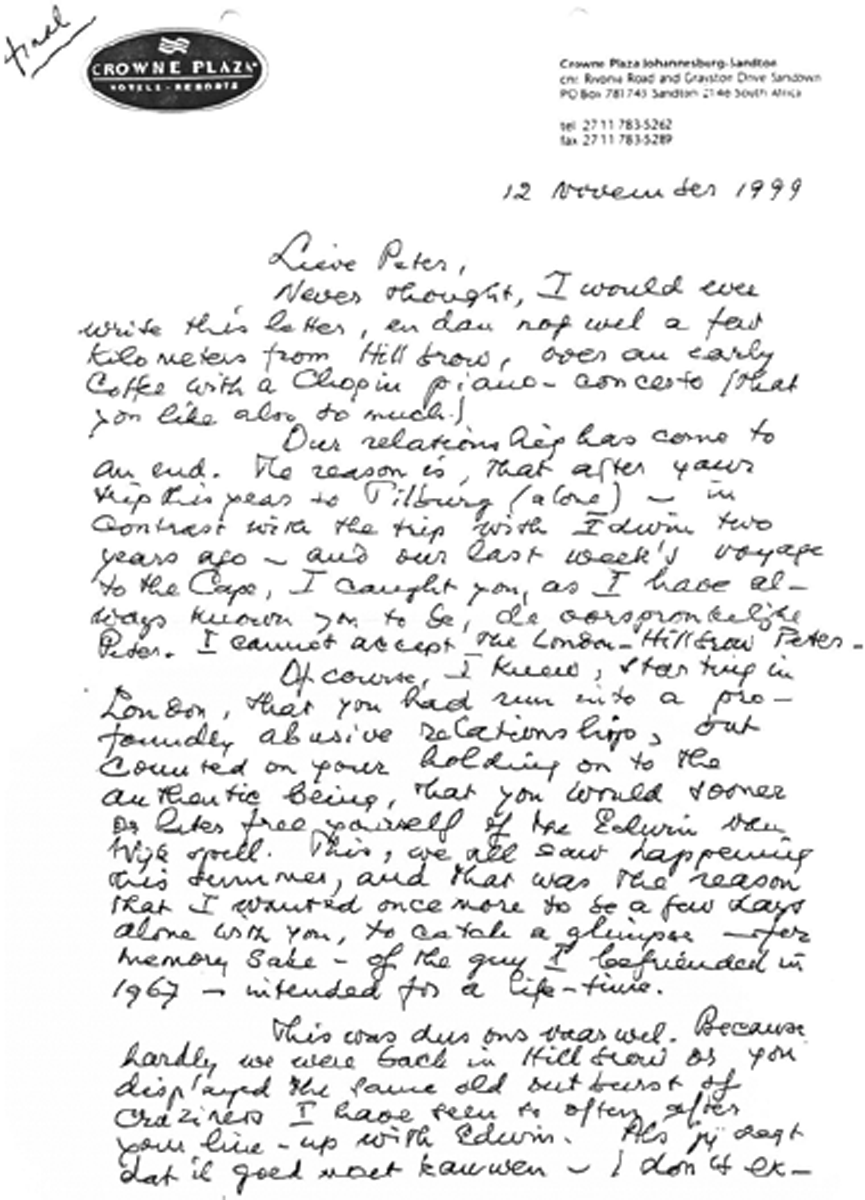 final
CROWNE PLAZA
HOTELS · RESORTS
Crowne Plaza Johannesburg-Sandton
cnr Rivonia Road and Grayston Drive Sandown
PO Box 781743 Sandton 2146 South Africa
tel 27 11 783-5262
fax 27 11 783-5289
12 November 1999
Lieve Peter,
Never thought, I would ever
write this letter, en dan nog wel a few
kilometers from Hillbrow, over an early
Coffee with a Chopin piano-concerto (that
you like also so much.)
Our relationship has come to
an end. The reason is, that after your
trip this year to Tilburg (alone) – in
contrast with the trip with Edwin two
years ago – and our last week's voyage
to the Cape, I caught you, as I have al-
ways known you to be, de oorspronkelijke
Peter. I cannot accept the London-Hillbrow Peter.
Of course, I knew, starting in
London, that you had run into a pro-
foundly abusive relationship, but
counted on your holding on to the
authentic being, that you would sooner
or later free yourself of the Edwin van
Wijk spell. This, we all saw happening
this summer, and that was the reason
that I wanted once more to be a few days
alone with you, to catch a glimpse – for
memory sake – of the guy I befriended in
1967 – intended for a life-time.
This was dus ons vaarwel. Because
hardly we were back in Hillbrow or you
displayed the same old outburst of
craziness I have seen so often after
your line-up with Edwin. Als jij zegt
dat ik goed moet kauwen – I don't ex-